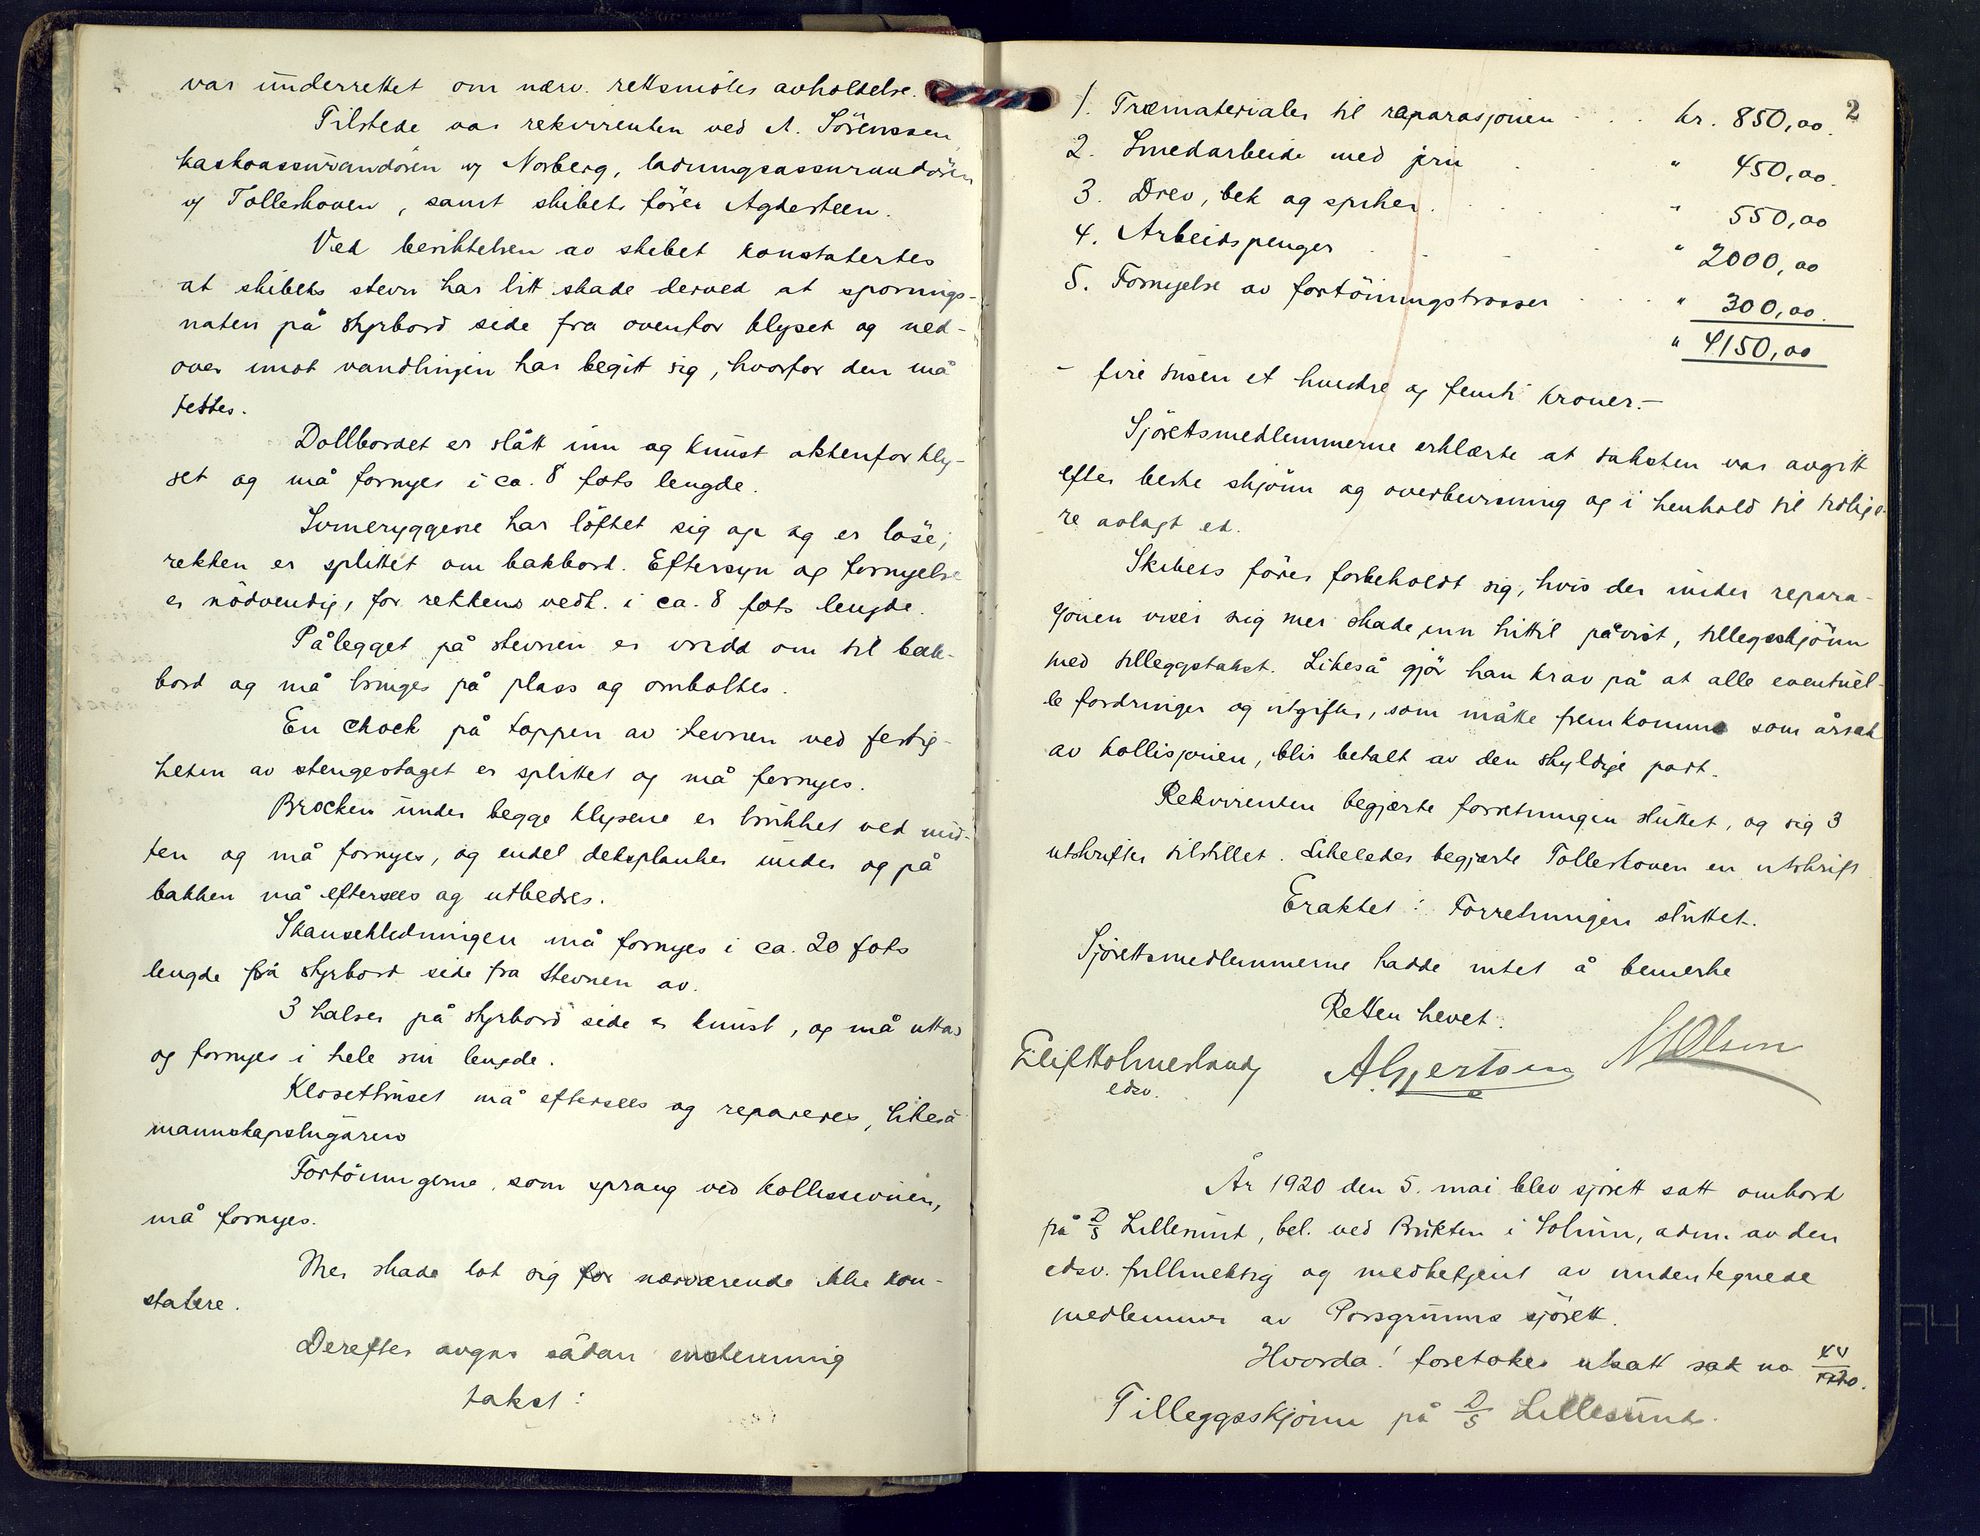 var underrettet om nærv. rettsmötes avholdelse.
Tilstede var rekvirenten ved A. Sörenssen
kaskoassurandören v/ Norberg, ladningsassurandören
v/ Tollerhoven, samt skibets förer Agdesteen.
Ved besiktelsen av skibet konstatertes
at skibets stevn har litt skade derved at sponings-
naten på styrbord side fra ovenfor klyset og ned-
over imot vandlinjen har begitt sig, hvorfor den må
tettes.
Dollbordet er slått inn og knust aktenfor kly-
set og må fornyes i ca. 8 fots lengde.
Svineryggene har löftet sig op og er löse;
rekken er splittet om bakbord. Eftersyn og fornyelse
er nödvendig, for rekkens vedk. i ca. 8 fots lengde.
Pålegget på stevnen er vridd om til bak-
bord og må bringes på plass og omboltes.
En chock på toppen av stevnen ved festig-
heten av stengestaget er splittet og må fornyes.
Brocken under begge klysene er brukket ved mid-
ten og må fornyes, og endel deksplanker under og på
bakken må eftersees og utbedres.
Skansekledningen må fornyes i ca. 20 fots
lengde på styrbord side fra stevnen av.
3 halser på styrbord side er knust, og må uttas
og fornyes i hele sin lengde.
Klosetthuset må eftersees og repareres, likeså
mannskapslugaren
Fortöiningerne, som sprang ved kollissionen,
må fornyes.
Mer skade lot sig for nærværende ikke kon-
statere.
Derefter avgas sådan enstemmig
takst:
2
1. Træmaterialer til reparasjonen . . . kr. 850,00.
2. Smedarbeide med jern . " 450,00.
3. Drev, bek og spiker. . . " 550,00
4. Arbeidspenger . . . " 2000,00
5. Fornyelse av fortöiningstrosser . . . " 300,00.
" 4150,00
- fire tusen et hundre og femti kroner.-
Sjörettsmedlemmerne erklærte at taksten var avgitt
efter beste skjönn og overbevisning og i henhold til tidlige-
re avlagt ed.
Skibets förer forbeholdt sig, hvis der under repara-
sjonen viser sig mer skade enn hittil påvist, tillegsskjönn
med tilleggstakst. Likeså gjör han krav på at alle eventuel-
le fordringer og utgifter, som måtte fremkomme som årsak
av kollisjonen, blir betalt av den skyldige part.
Rekvirenten begjærte forretningen sluttet, og sig 3
utskrifter tilstillet. Likeledes begjærte Tollerhoven en utskrift
Eraktet: Forretningen sluttet.
Sjörettsmedlemmerne hadde intet å bemerke
Retten hevet.
Eilif Holmesland
edsv.
A Gjertsen
N Olsen
År 1920 den 5. mai blev sjörett satt ombord
på D/S Lillesund, bel. ved Bukten i Solum, adm. av den
edsv. fullmektig og medbetjent av undertegnede
medlemmer av Porsgrunns sjörett.
Hvorda: foretokes utsatt sak no 44/1920.
Tilleggsskjönn på D/S Lillesund.